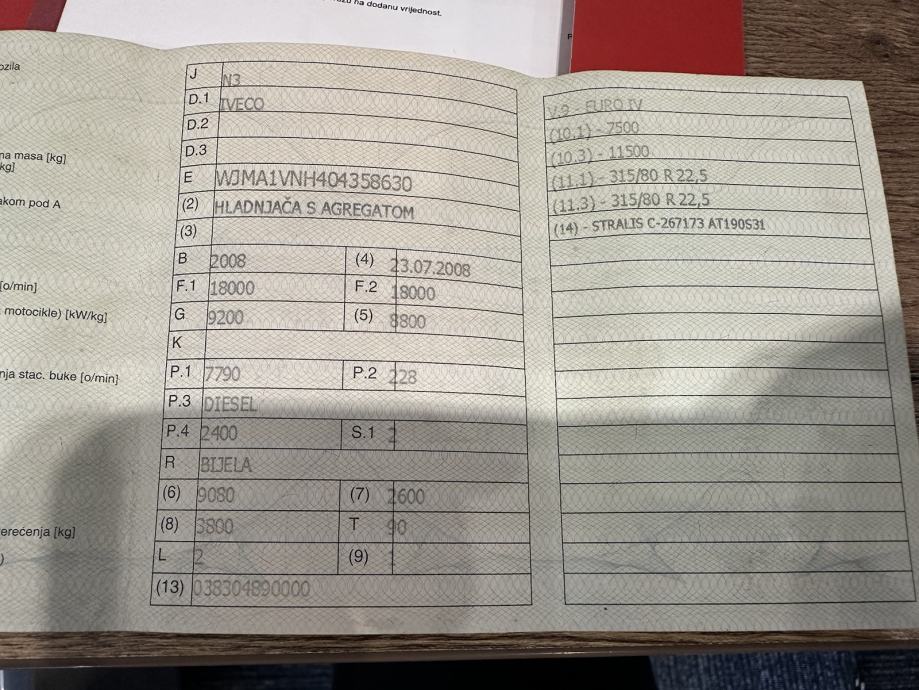 žu na dodanu vrijednost.
ozila
na masa [kg]
kg]
akom pod A
[o/min]
motocikle) [kW/kg]
nja stac. buke [o/min]
erećenja [kg]
)
J N3
D.1 IVECO
D.2
D.3
E WJMA1VNH404358630
(2) HLADNJAČA S AGREGATOM
(3)
B 2008 (4) 23.07.2008
F.1 18000 F.2 18000
G 9200 (5) 8800
K
P.1 7790 P.2 228
P.3 DIESEL
P.4 2400 S.1 2
R BIJELA
(6) 9080 (7) 2600
(8) 3800 T 90
L 2 (9)
(13) 038304890000
V.9 - EURO IV
(10.1) - 7500
(10.3) - 11500
(11.1) - 315/80 R 22,5
(11.3) - 315/80 R 22,5
(14) - STRALIS C-267173 AT190S31
P